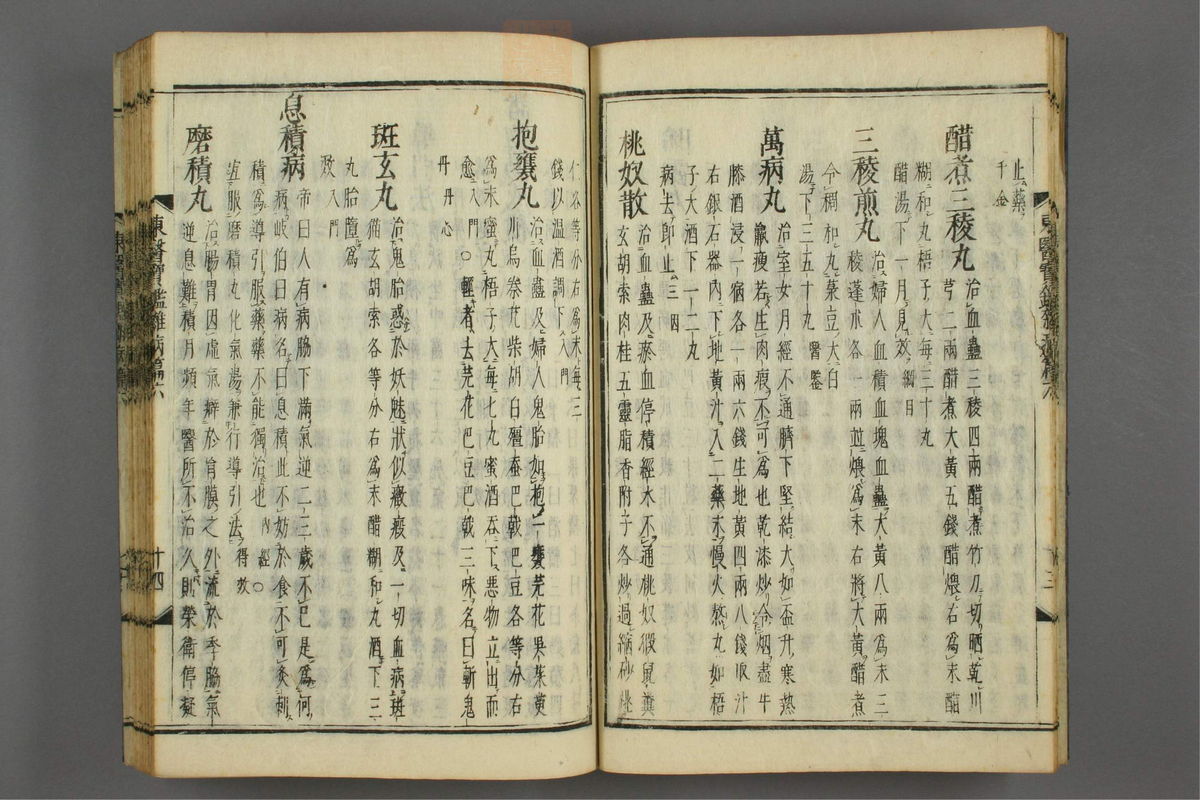 止藥
千金
醋煮三稜丸 治血蠱三稜四兩醋煮竹刀切晒乾川
芎二兩醋煮大黃五錢醋煨右爲末醋
糊和丸梧子大每三十丸
醋湯下一月見效綱目
三稜煎丸 治婦人血積血塊血蠱大黃八兩爲末三
稜蓬朮各一兩並煨爲末右將大黃醋煮
令稠和丸菉豆大白
湯下三五十丸 醫鑑
萬病丸 治室女月經不通臍下堅結大如盃升寒熱
羸瘦若生肉瘕不可爲也乾漆炒令烟盡牛
膝酒浸一宿各一兩六錢生地黃四兩八錢取汁
右銀石器內下地黃汁入二藥末慢火熬丸如梧
子大酒下一二丸
病去卽止三因
桃奴散 治血蠱及瘀血停積經水不通桃奴猳鼠糞
玄胡索肉桂五靈脂香附子各炒過縮砂桃
仁各等分右爲末每三
錢以溫酒調下入門
抱甕丸 治血蠱及婦人鬼胎如抱一甕芫花吳茱萸
川烏秦艽柴胡白殭蚕巴戟巴豆各等分右
爲末蜜丸梧子大每七丸蜜酒吞下惡物立出而
愈入門○輕者去芫花巴豆巴戟三味名曰斬鬼
丹丹心
斑玄丸 治鬼胎惑於妖魅狀似癥瘕及一切血病斑
猫玄胡索各等分右爲末醋糊和丸酒下三
丸胎隨爲
效入門
息積病 帝曰人有病脇下滿氣逆二三歲不已是爲何
病岐伯曰病名曰息積此不妨於食不可灸刺
積爲導引服藥藥不能獨治也內經○
宜服磨積丸化氣湯兼行導引法得效
磨積丸 治腸胃因虛氣癖於肓膜之外流於季脇氣
逆息難積月頻年醫所不治久則榮衛停凝
東醫寶鑑雜病篇六 十四